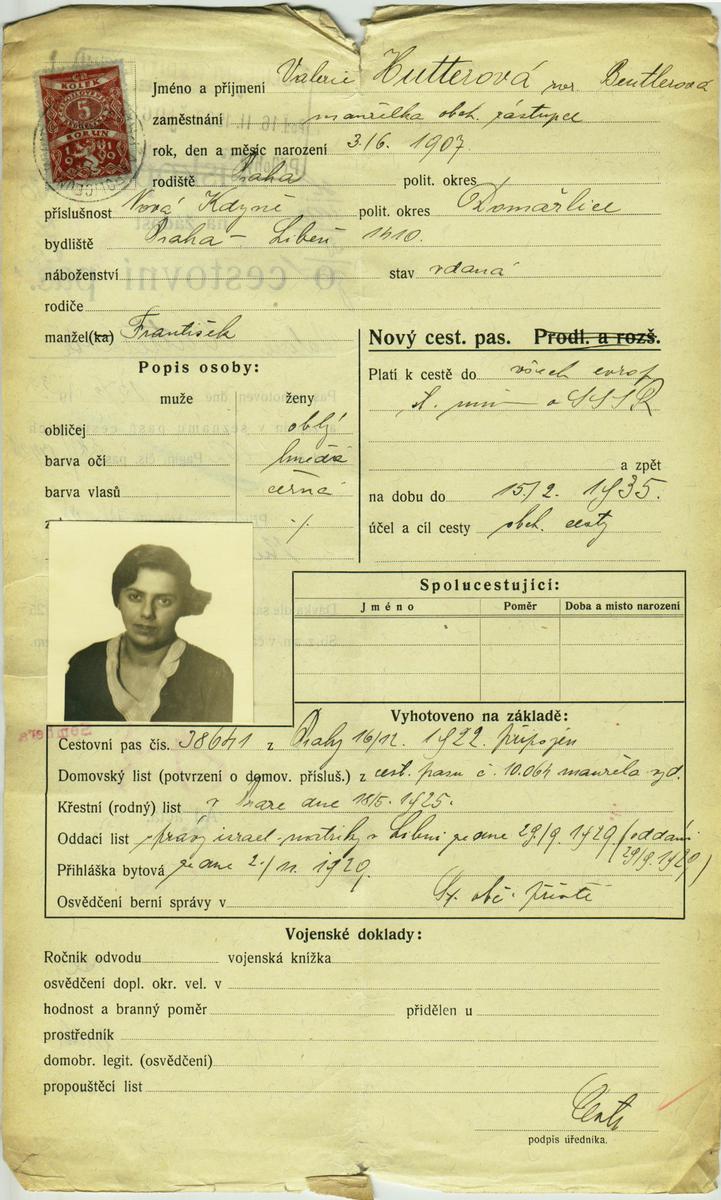 KOLEK
5
KORUN
Jméno a příjmení Valerie Hutterová roz. Beutlerová
zaměstnání manželka obch. zástupce
rok, den a měsíc narození 3./6. 1907.
rodiště Praha polit. okres
příslušnost Nová Kdyně polit. okres Domažlice
bydliště Praha - Libeň 1410.
náboženství stav vdaná
rodiče
manžel(ka) František
Popis osoby:
muže ženy
obličej oblý
barva očí hnědá
barva vlasů černá
Nový cest. pas. Prodl. a rozš.
Platí k cestě do všech evrop
st. mimo SSSR
a zpět
na dobu do 15/2. 1935.
účel a cíl cesty obch. cesty
Spolucestující:
Jméno Poměr Doba a místo narození
Vyhotoveno na základě:
Cestovní pas čís. 38641 z Prahy 1922. připojen
Domovský list (potvrzení o domov. přísluš.) z cest. pasu č. 10.064 manžela vyd.
Křestní (rodný) list v Praze dne 18/5. 1925.
Oddací list israel. matriky v Libni ze dne 29/9. 1929. (oddáni
29/9. 1929)
Přihláška bytová ze dne 2./11. 1929.
Osvědčení berní správy v
Vojenské doklady:
Ročník odvodu vojenská knížka
osvědčení dopl. okr. vel. v
hodnost a branný poměr přidělen u
prostředník
domobr. legit. (osvědčení)
propouštěcí list
podpis úředníka.